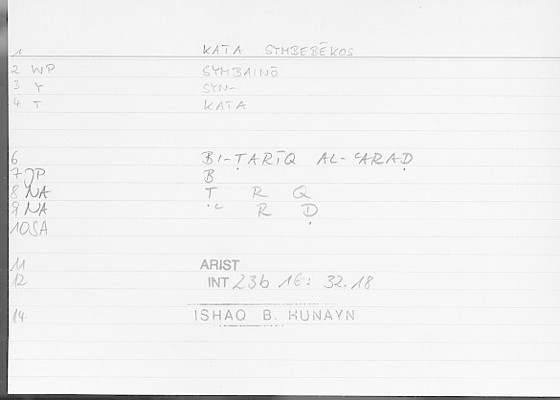 1 KATA SYMBEBĒKOS
2 WP SYMBAINŌ
3 Y SYN-
4 T KATA
6 BI-ṬARĪQ AL-ʿARAḌ
7 JP B
8 NA Ṭ R Q
9 NA ʿ R Ḍ
10 SA
11 ARIST
12 INT 23b 16: 32.18
14 ISHAQ B. HUNAYN